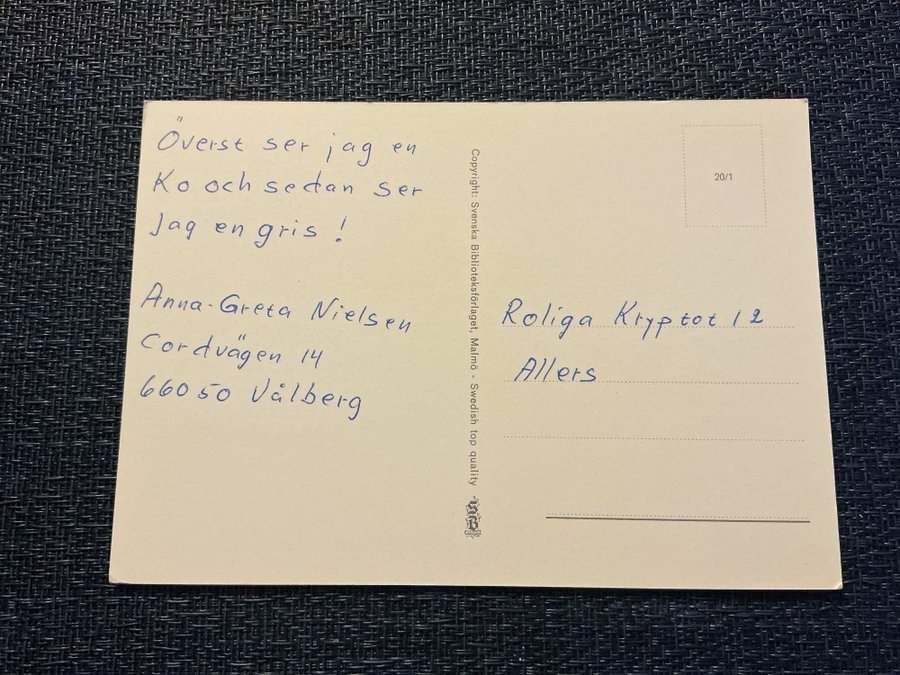 Överst ser jag en
Ko och sedan ser
Jag en gris !
Anna-Greta Nielsen
Cordvägen 14
660 50 Vålberg
Copyright: Svenska Biblioteksförlaget, Malmö - Swedish top quality
20/1
Roliga Kryptot 12
Allers